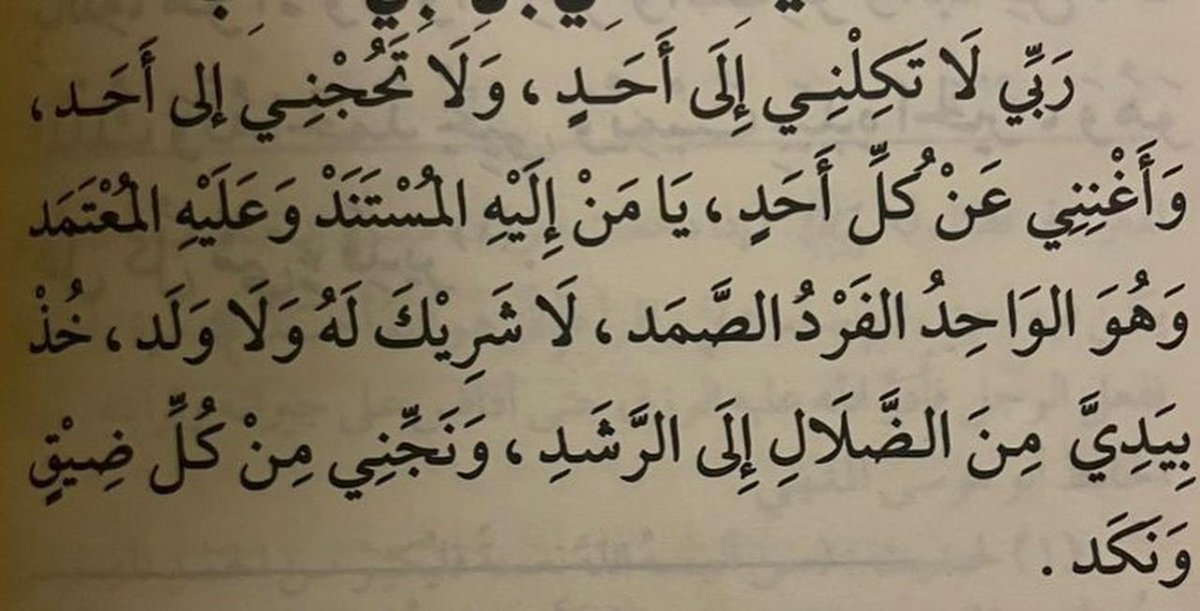 رَبِّي لَا تَكِلْنِي إِلَى أَحَدٍ ، وَلَا تَحُجْنِي إلى أَحَد ،
وَأَغْنِنِي عَنْ كُلِّ أَحَدٍ ، يَا مَنْ إِلَيْهِ المُسْتَنَدْ وَعَلَيْهِ المُعْتَمَد
وَهُوَ الوَاحِدُ الفَرْدُ الصَّمَد ، لَا شَرِيْكَ لَهُ وَلَا وَلَد ، خُذْ
بِيَدِيَّ مِنَ الضَّلَالِ إِلَى الرَّشَدِ ، وَنَجِّنِي مِنْ كُلِّ ضِيْقٍ
وَنَكَد .